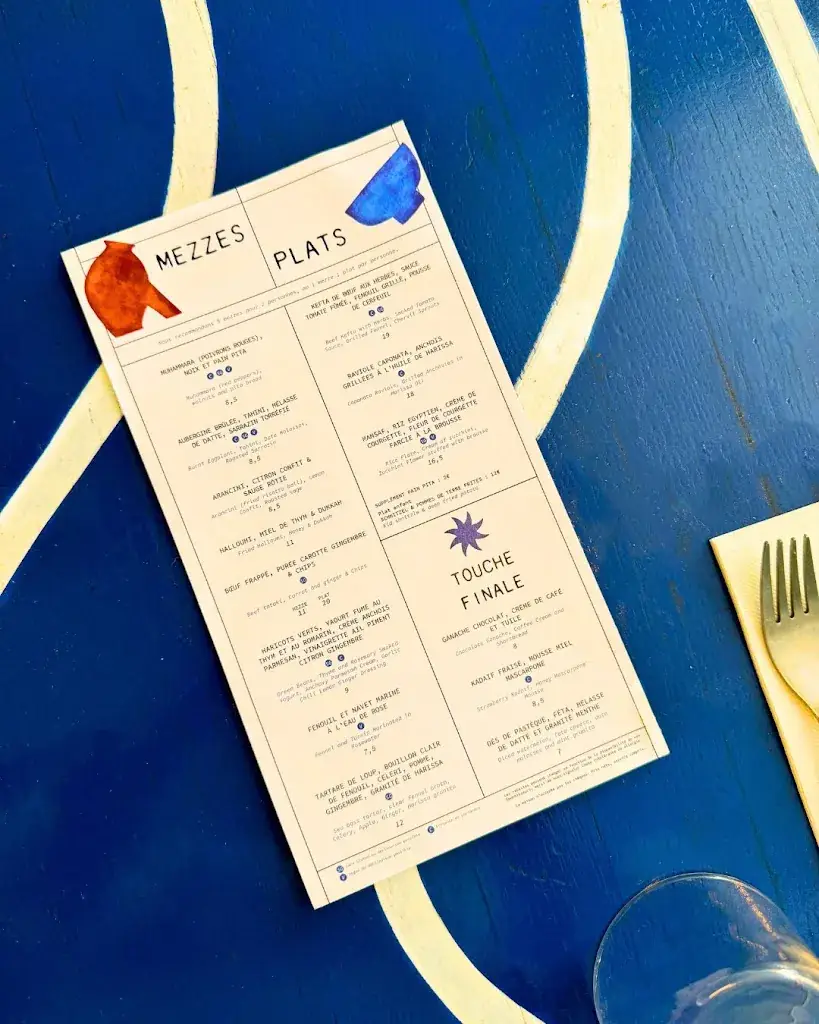 MEZZES
PLATS
Nous recommandons 5 mezzes pour 2 personnes, ou 1 mezze 1 plat par personne.
MUHAMMARA (POIVRONS ROUGES),
NOIX ET PAIN PITA
Muhammara (red peppers),
walnuts and pita bread
8,5
AUBERGINE BRÛLÉE, TAHINI, MÉLASSE
DE DATTE, SARRAZIN TORRÉFIÉ
Burnt Eggplant, Tahini, Date Molasses,
Roasted Sarrazin
8,5
ARANCINI, CITRON CONFIT &
SAUGE RÔTIE
Arancini (fried risotto ball), Lemon
Confit, Roasted sage
8,5
HALLOUMI, MIEL DE THYM & DUKKAH
Fried Halloumi, Honey & Dukkah
11
BŒUF FRAPPÉ, PURÉE CAROTTE GINGEMBRE
& CHIPS
Beef Tataki, Carrot and Ginger & Chips
MEZZE PLAT
11 20
HARICOTS VERTS, YAOURT FUMÉ AU
THYM ET AU ROMARIN, CRÈME ANCHOIS
PARMESAN, VINAIGRETTE AIL PIMENT
CITRON GINGEMBRE
Green Beans, Thyme and Rosemary Smoked
Yogurt, Anchovy Parmesan Cream, Garlic
Chili Lemon Ginger Dressing
9
FENOUIL ET NAVET MARINÉ
À L'EAU DE ROSE
Fennel and Turnip Marinated in
Rosewater
7,5
TARTARE DE LOUP, BOUILLON CLAIR
DE FENOUIL, CÉLERI, POMME,
GINGEMBRE, GRANITÉ DE HARISSA
Sea Bass Tartar, Clear Fennel Broth,
Celery, Apple, Ginger, Harissa granita
12
KEFTA DE BŒUF AUX HERBES, SAUCE
TOMATE FUMÉE, FENOUIL GRILLÉ, POUSSE
DE CERFEUIL
Beef Kefta with Herbs, Smoked Tomato
Sauce, Grilled Fennel, Chervil Sprouts
19
RAVIOLE CAPONATA, ANCHOIS
GRILLÉES À L'HUILE DE HARISSA
Caponata Ravioli, Grilled Anchovies in
Harissa Oil
18
MANSAF, RIZ EGYPTIEN, CRÈME DE
COURGETTE, FLEUR DE COURGETTE
FARCIE À LA BROUSSE
Rice Cream of zucchini,
Zucchini Flower stuffed with brousse
16,5
SUPPLÉMENT PAIN PITA : 2€
Plat enfant
SCHNITZEL & POMMES DE TERRE FRITES : 12€
Kid shnitzle & deep fried potato
TOUCHE
FINALE
GANACHE CHOCOLAT, CRÈME DE CAFÉ
ET TUILE
Chocolate Ganache, Coffee Cream and
Shortbread
8
KADAÏF FRAISE, MOUSSE MIEL
MASCARPONE
Strawberry Kadaif, Honey Mascarpone
Mousse
8,5
DÉS DE PASTÈQUE, FÉTA, MÉLASSE
DE DATTE ET GRANITÉ MENTHE
Diced watermelon, feta cheese, date
molasses and mint granita
7